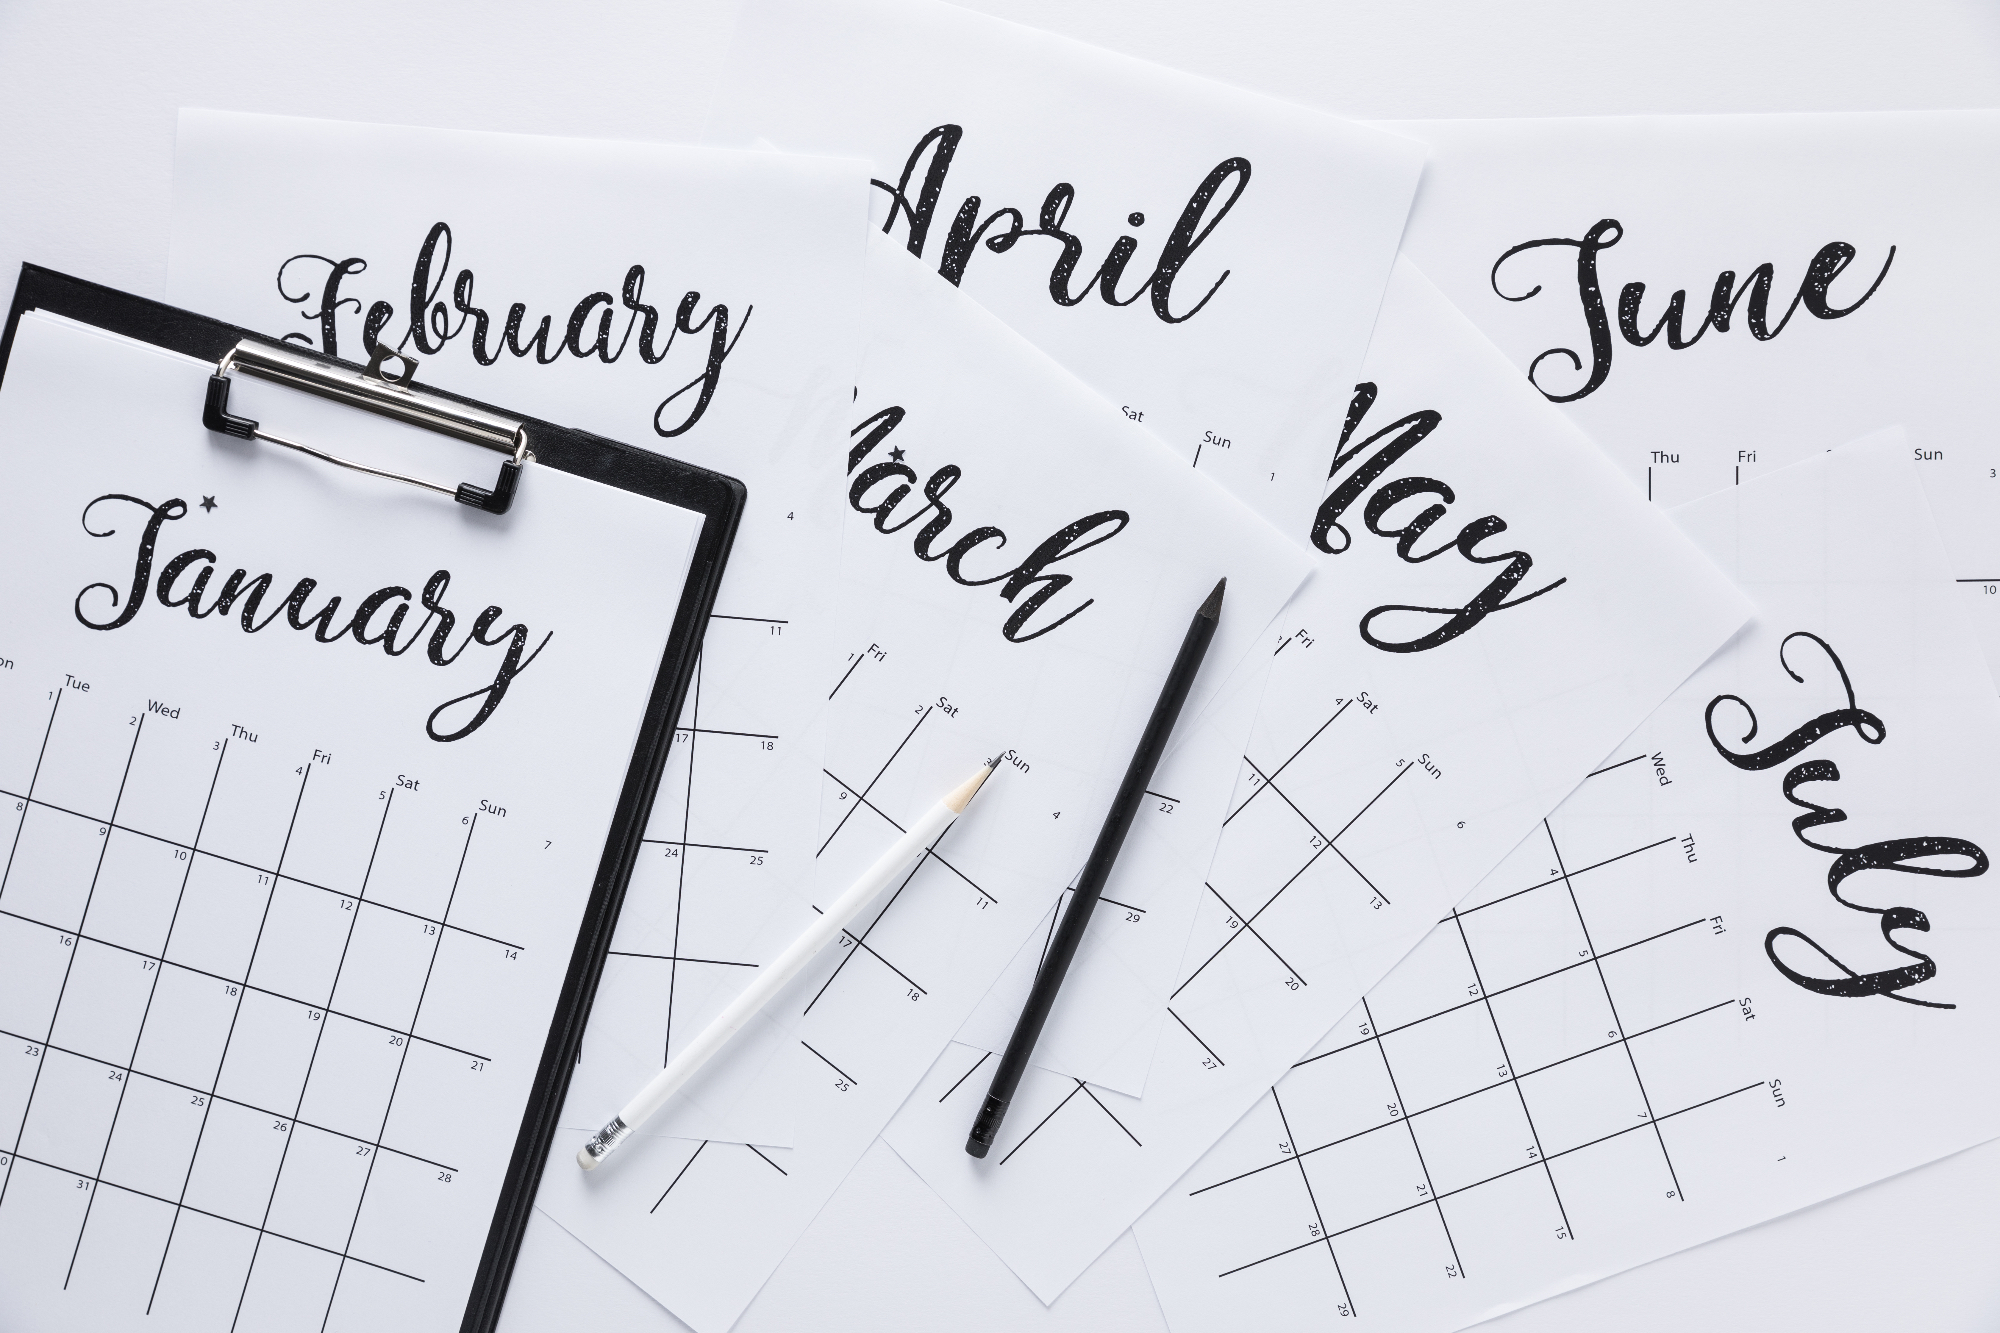 January
Tue Wed Thu Fri Sat Sun
1 2 3 4 5 6 7
8 9 10 11 12 13 14
16 17 18 19 20 21
23 24 25 26 27 28
31
February
4
11
17 18
24 25
March
Fri Sat Sun
1 2 3 4
9 11
17 18
25
April
Sat Sun
1
22
29
May
Fri Sat Sun
4 5 6
11 12 13
19 20
27
June
Thu Fri Sun
3
10
July
Wed Thu Fri Sat Sun
1
4 5 6 7 8
12 13 14 15
19 20 21 22
27 28 29